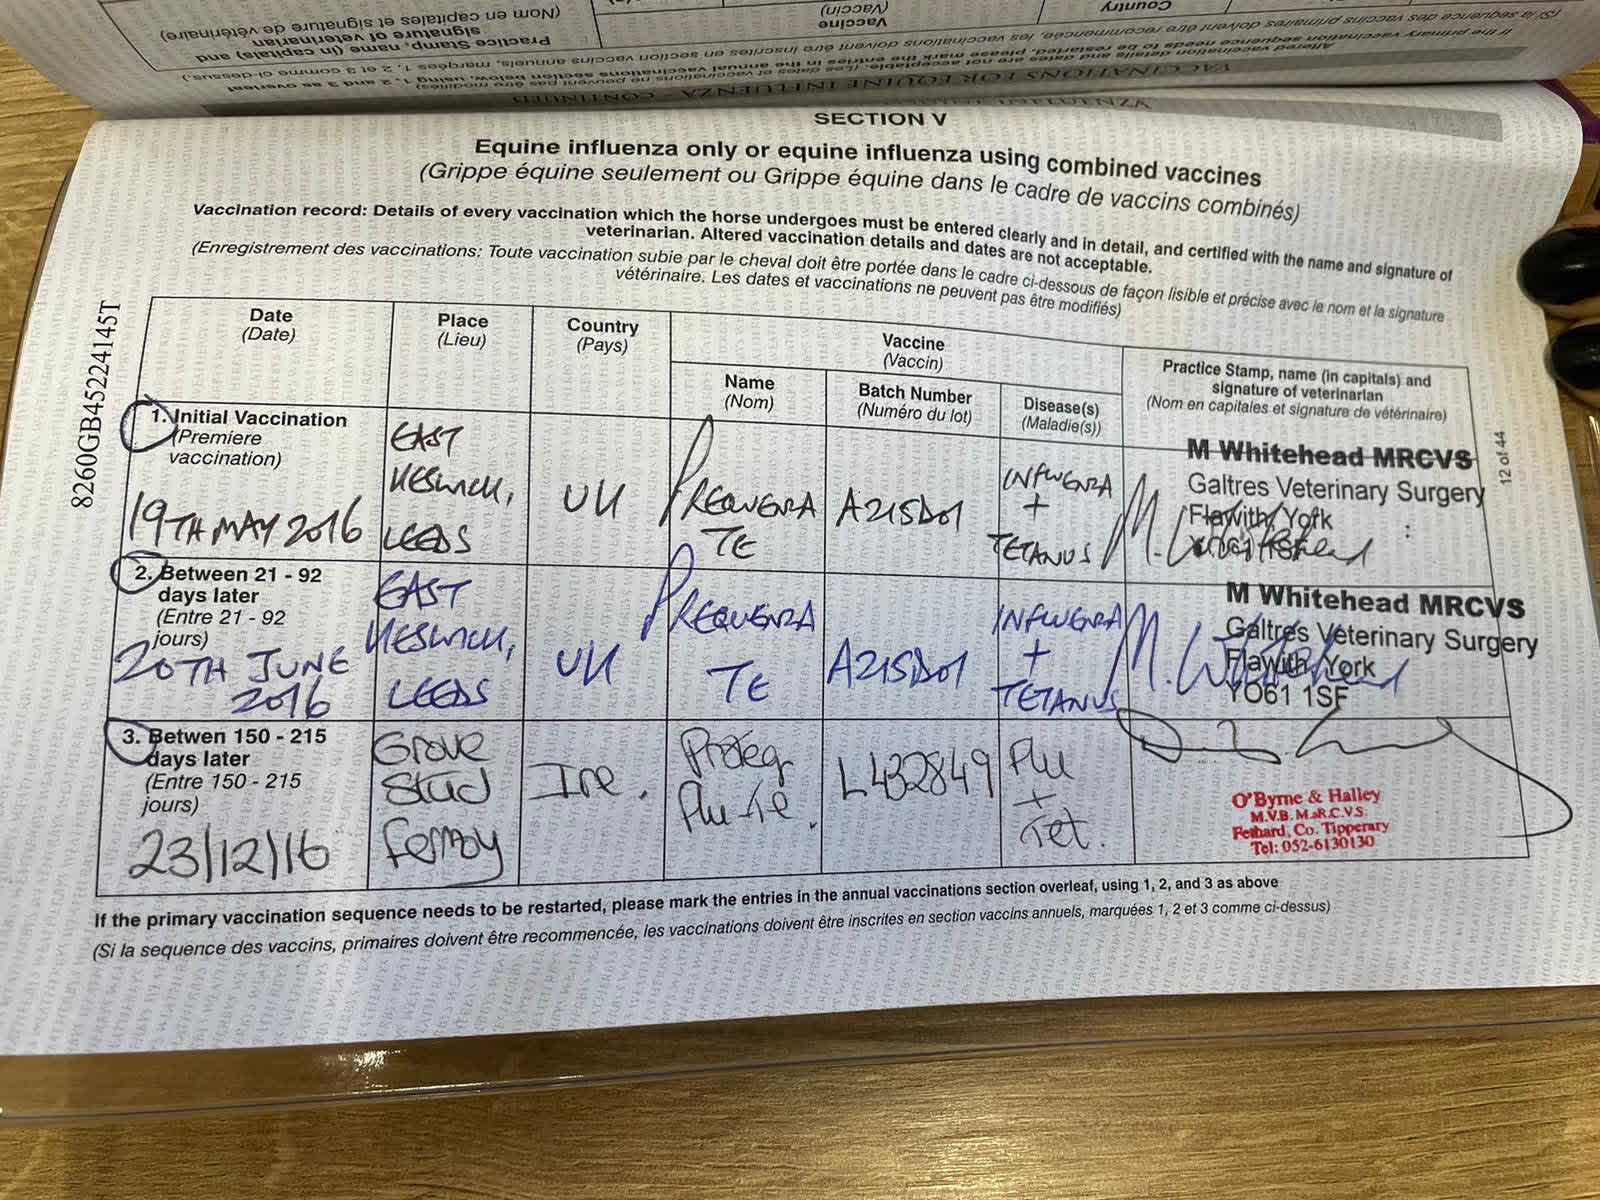 VACCINATIONS FOR EQUINE INFLUENZA - CONTINUED
Altered vaccination details and dates are not acceptable.
Practice Stamp, name (in capitals) and
signature of veterinarian
(Nom en capitales et signature de vétérinaire)
Vaccine
(Vaccin)
Country
SECTION V
Equine influenza only or equine influenza using combined vaccines
(Grippe équine seulement ou Grippe équine dans le cadre de vaccins combinés)
Vaccination record: Details of every vaccination which the horse undergoes must be entered clearly and in detail, and certified with the name and signature of
veterinarian. Altered vaccination details and dates are not acceptable.
(Enregistrement des vaccinations: Toute vaccination subie par le cheval doit être portée dans le cadre ci-dessous de façon lisible et précise avec le nom et la signature
vétérinaire. Les dates et vaccinations ne peuvent pas être modifiés)
8260GB45224145T
12 of 44
Date
(Date)
Place
(Lieu)
Country
(Pays)
Vaccine
(Vaccin)
Name
(Nom)
Batch Number
(Numéro du lot)
Disease(s)
(Maladie(s))
Practice Stamp, name (in capitals) and
signature of veterinarian
(Nom en capitales et signature de vétérinaire)
1. Initial Vaccination
(Premiere
vaccination)
19TH MAY 2016
EAST
KESWICK,
LEEDS
UK
PREQUENZA
TE
A215D01
INFLUENZA
+
TETANUS
M Whitehead MRCVS
Galtres Veterinary Surgery
Flawith, York
YO61 1SF
M. Whitehead
2. Between 21 - 92
days later
(Entre 21 - 92
jours)
20TH JUNE
2016
EAST
KESWICK,
LEEDS
UK
PREQUENZA
TE
A215D01
INFLUENZA
+
TETANUS
M Whitehead MRCVS
Galtres Veterinary Surgery
Flawith, York
YO61 1SF
M. Whitehead
3. Betwen 150 - 215
days later
(Entre 150 - 215
jours)
23/12/16
Grove
Stud
Fermoy
Ire.
Proteq
Flu-Te.
L432849
Flu
+
Tet.
O'Byrne & Halley
M.V.B. M.R.C.V.S.
Fethard, Co. Tipperary
Tel: 052-6130130
If the primary vaccination sequence needs to be restarted, please mark the entries in the annual vaccinations section overleaf, using 1, 2, and 3 as above
(Si la sequence des vaccins, primaires doivent être recommencée, les vaccinations doivent être inscrites en section vaccins annuels, marquées 1, 2 et 3 comme ci-dessus)